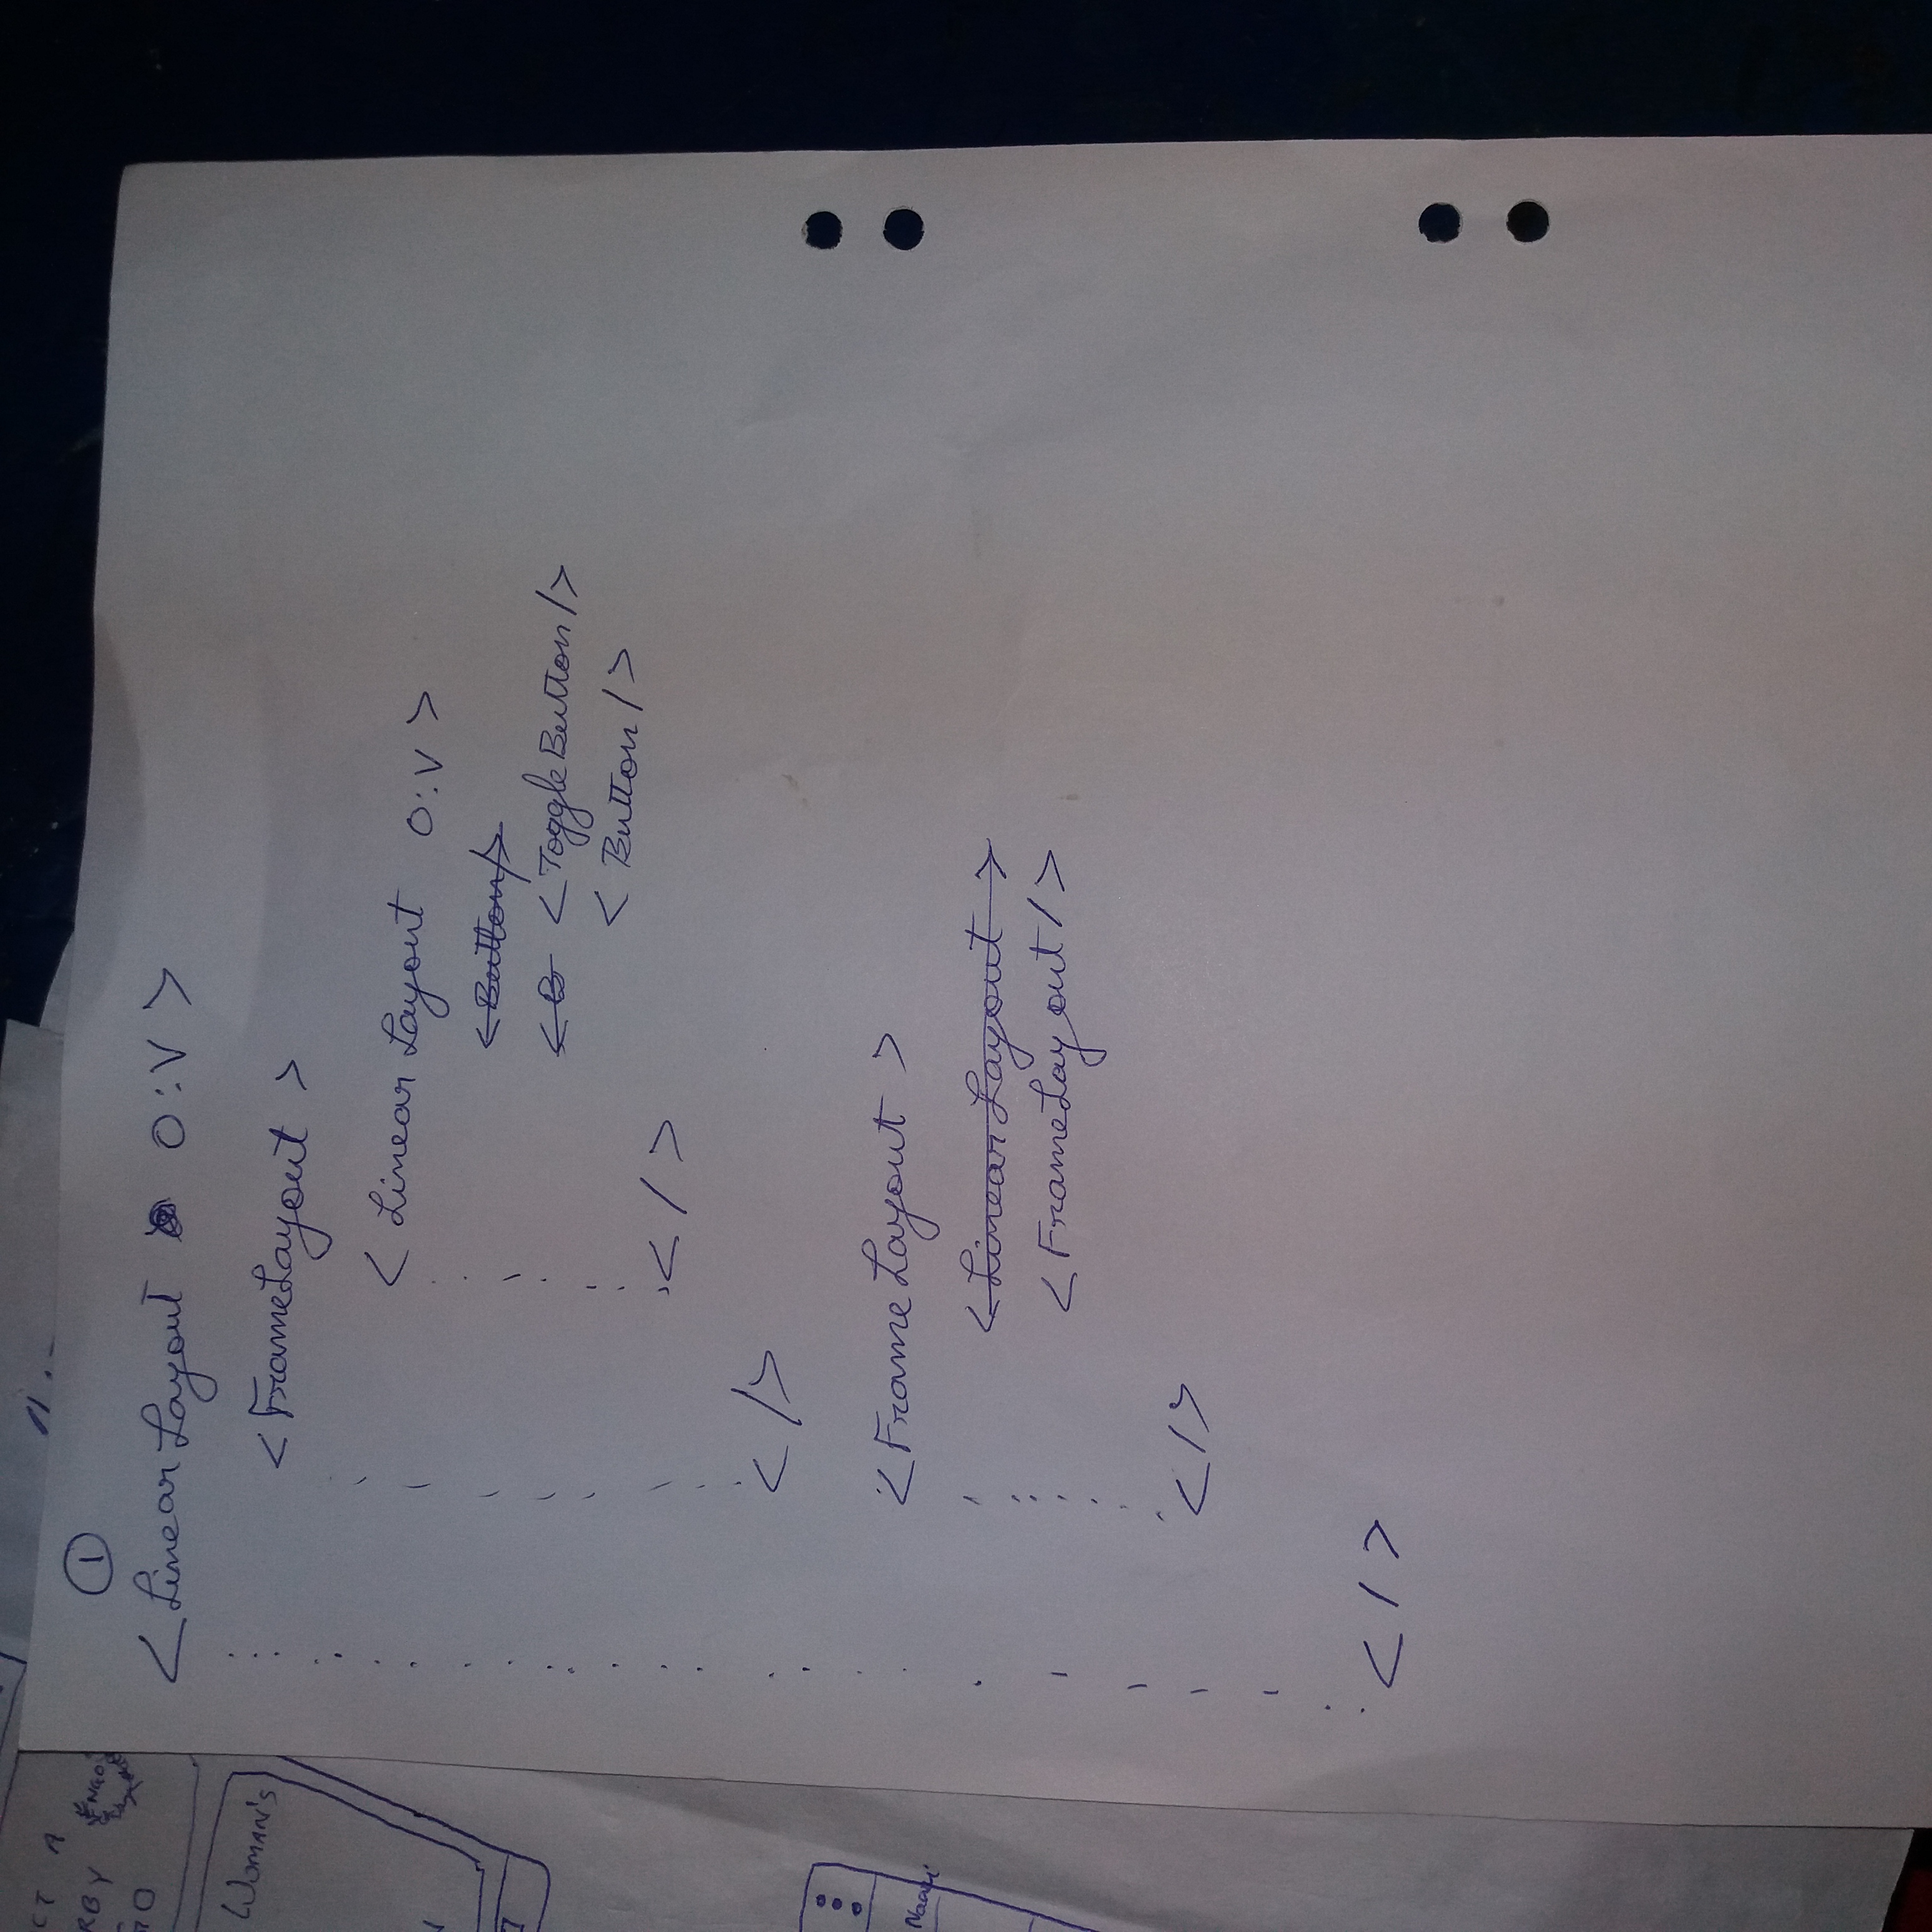 CT A
RBY
NGO
GO
WOMAN'S
Naari
1
<LinearLayout O:V>
<FrameLayout>
<LinearLayout O:V>
<Button/>
<B <ToggleButton/>
<Button/>
</>
</>
<FrameLayout>
<LinearLayout>
<FrameLayout/>
</>
</>